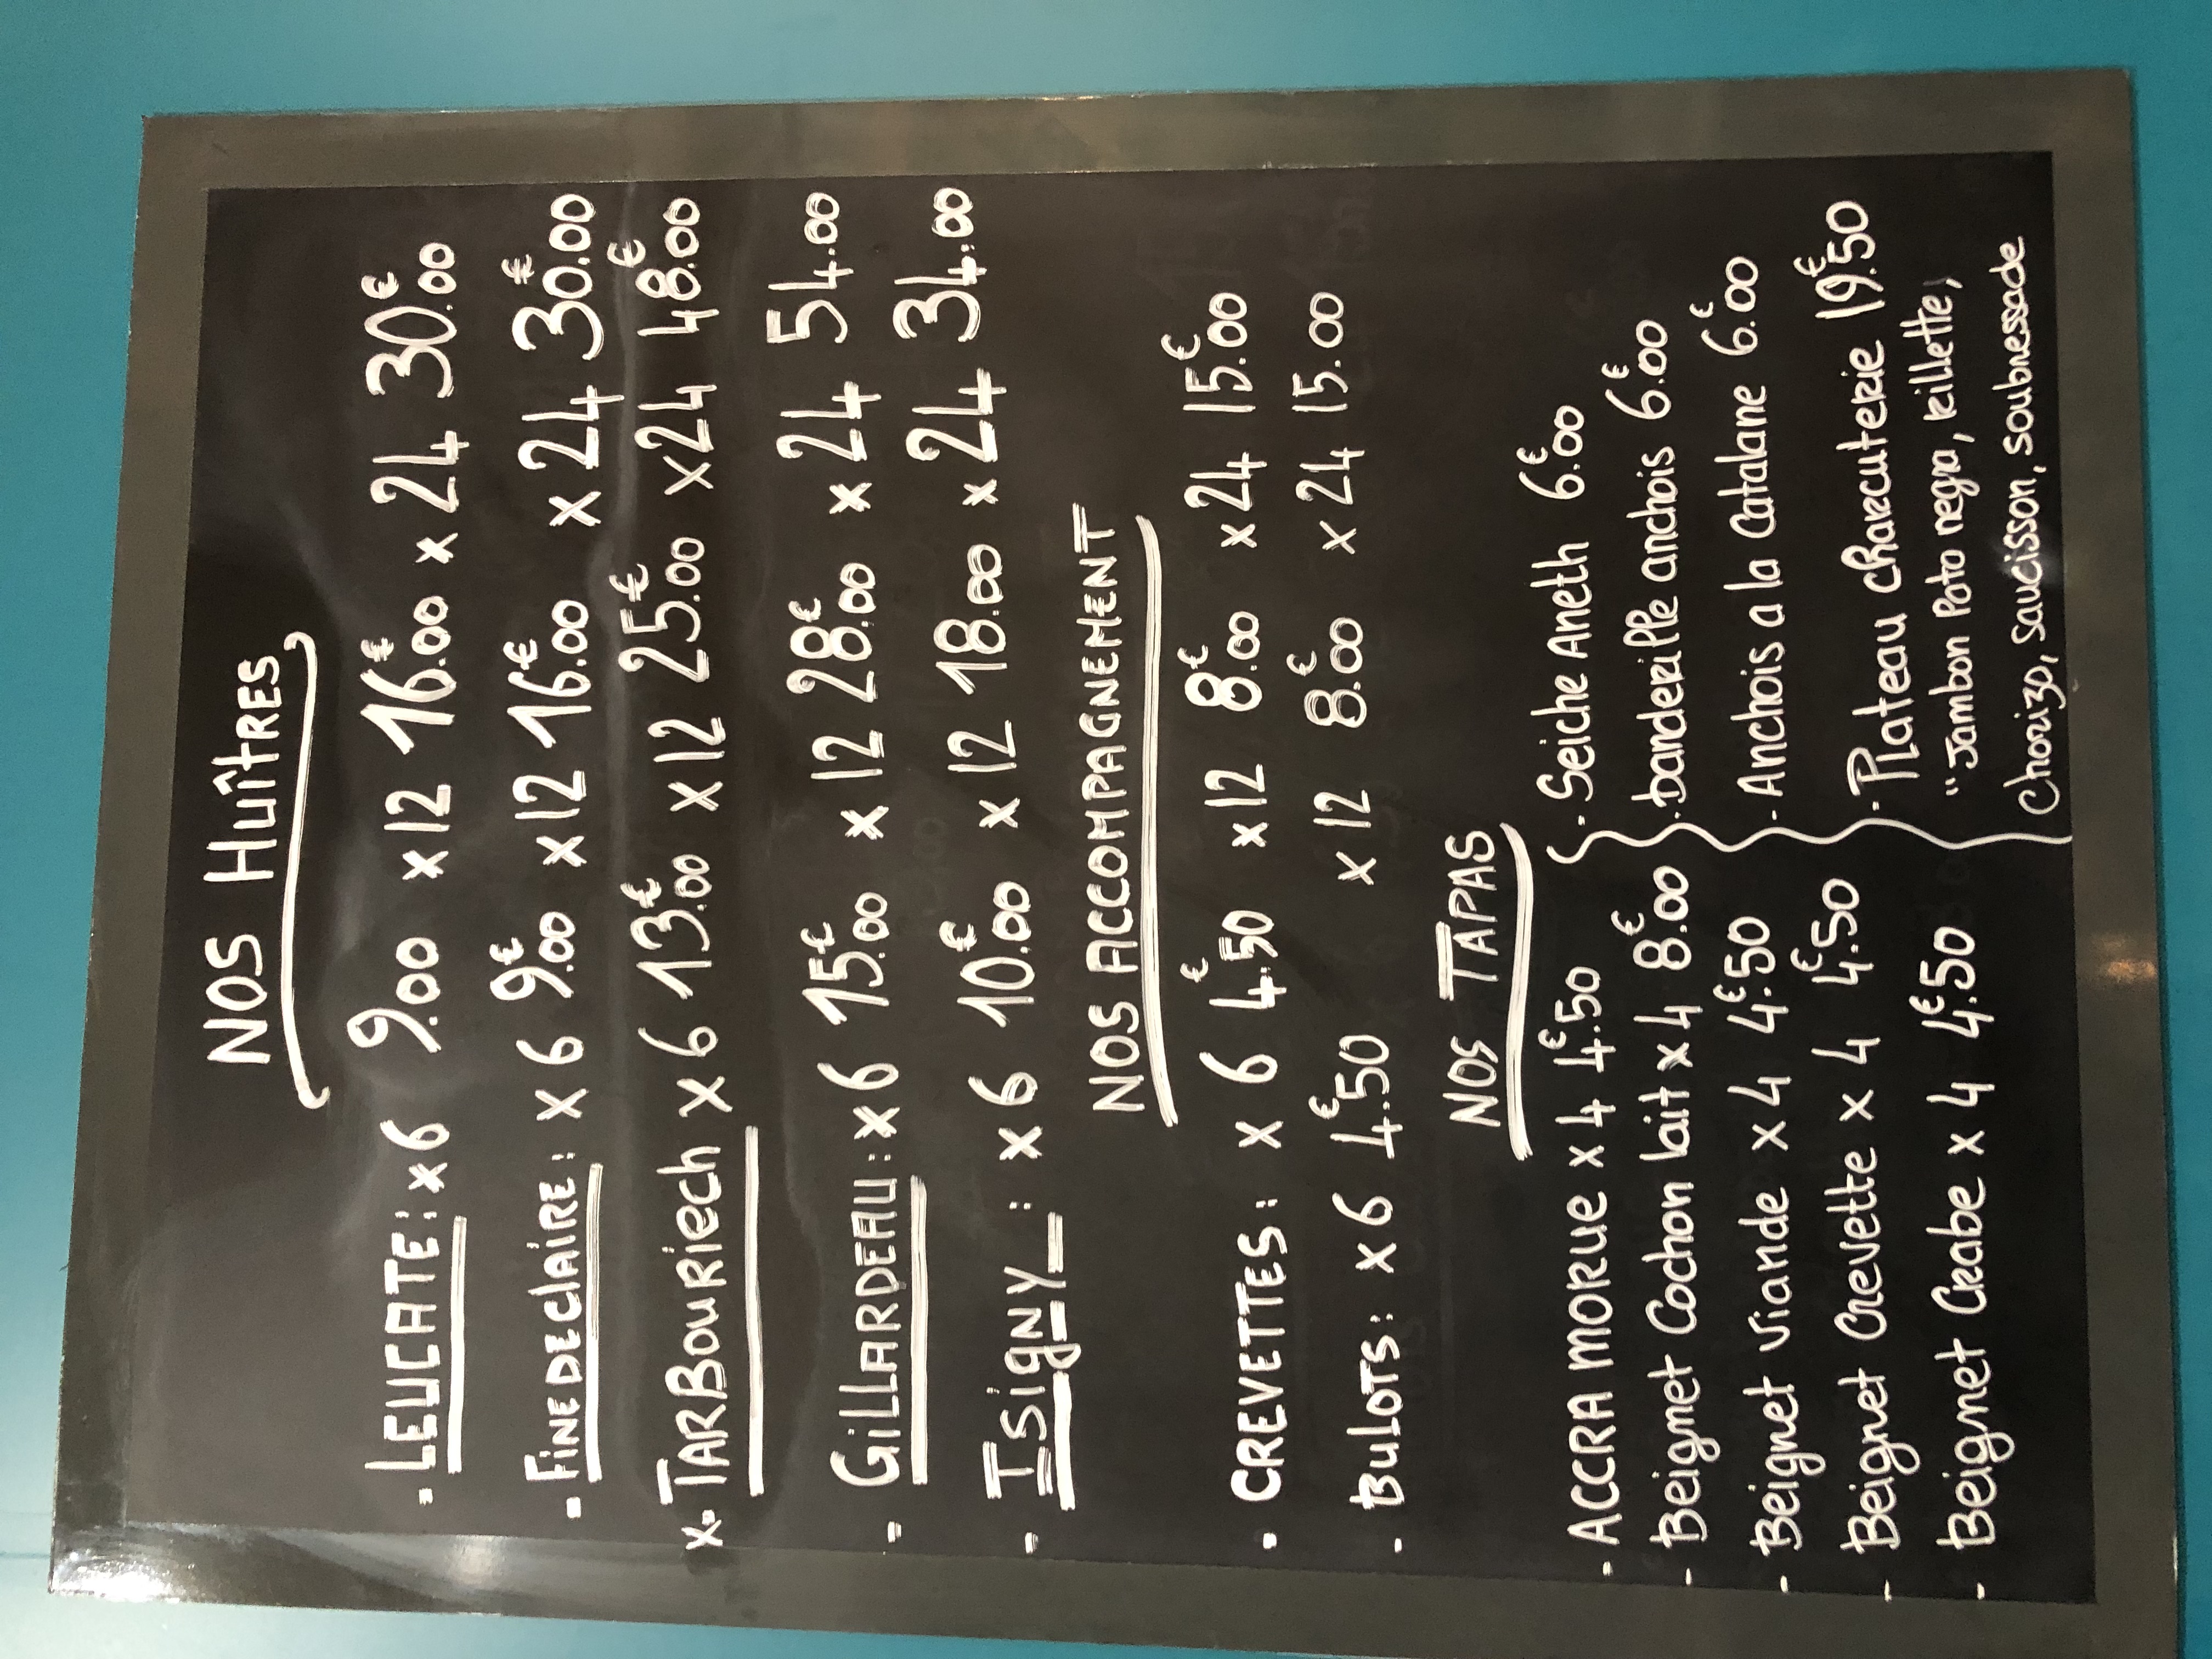 NOS HUîTRES
- LEUCATE: x6 9.00 x12 16€.00 x 24 30€.00
- FINE DE CLAIRE: x 6 9€.00 x12 16€.00 x 24 30€.00
x- TARBOURIECH x 6 13€.00 x12 25€.00 x24 48€.00
- GILLARDEAU: x6 15€.00 x 12 28€.00 x 24 54.00
- ISIGNY : x 6 10€.00 x 12 18.00 x 24 34.00
NOS ACCOMPAGNEMENT
- CREVETTES: x 6 4€.50 x12 8€.00 x24 15€.00
- BULOTS: x 6 4€.50 x 12 8€.00 x 24 15.00
NOS TAPAS
- ACCRA MORUE x 4 4€.50
- Beignet Cochon lait x 4 8€.00
- Beignet Viande x 4 4€.50
- Beignet Crevette x 4 4€.50
- Beignet Crabe x 4 4€.50
- Seiche Aneth 6€.00
- banderille anchois 6€.00
- Anchois a la Catalane 6€.00
- Plateau charcuterie 19€.50
"Jambon Pata negra, rillette,
Chorizo, saucisson, soubressade